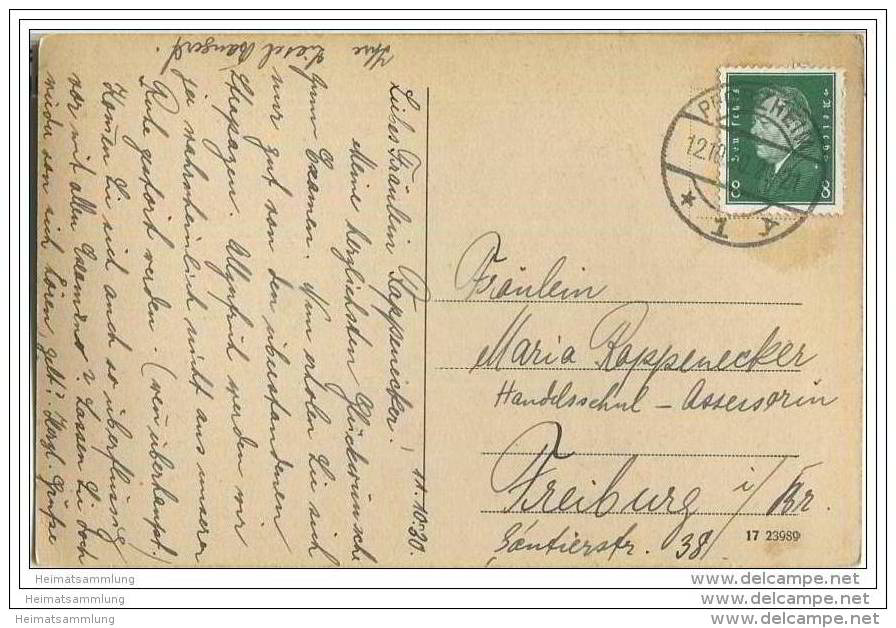 11.10.30.
Liebes Fräulein Rappenecker!
Meine herzlichsten Glückwünsche
zum Examen. Nun erholen Sie sich
nur gut von den überstandenen
Strapazen. Allzufrüh werden wir
ja wahrscheinlich nicht aus unserer
Ruhe gestört werden. (wenn überhaupt!)
Kommen Sie sich auch so überflüssig
vor mit allen ? Lassen Sie doch
wieder von sich hören, gelt? Herzl. Grüße
Ihre Liesel
Deutsches Reich
8 8
PFORZHEIM
12.10.30. 20-21
* 1 A
Fräulein
Maria Rappenecker
Handelsschul-Assessorin
Freiburg i/Br.
38
17 23989
Heimatsammlung
Heimatsammlung
Heimatsammlung
www.delcampe.net
www.delcampe.net
www.delcampe.net